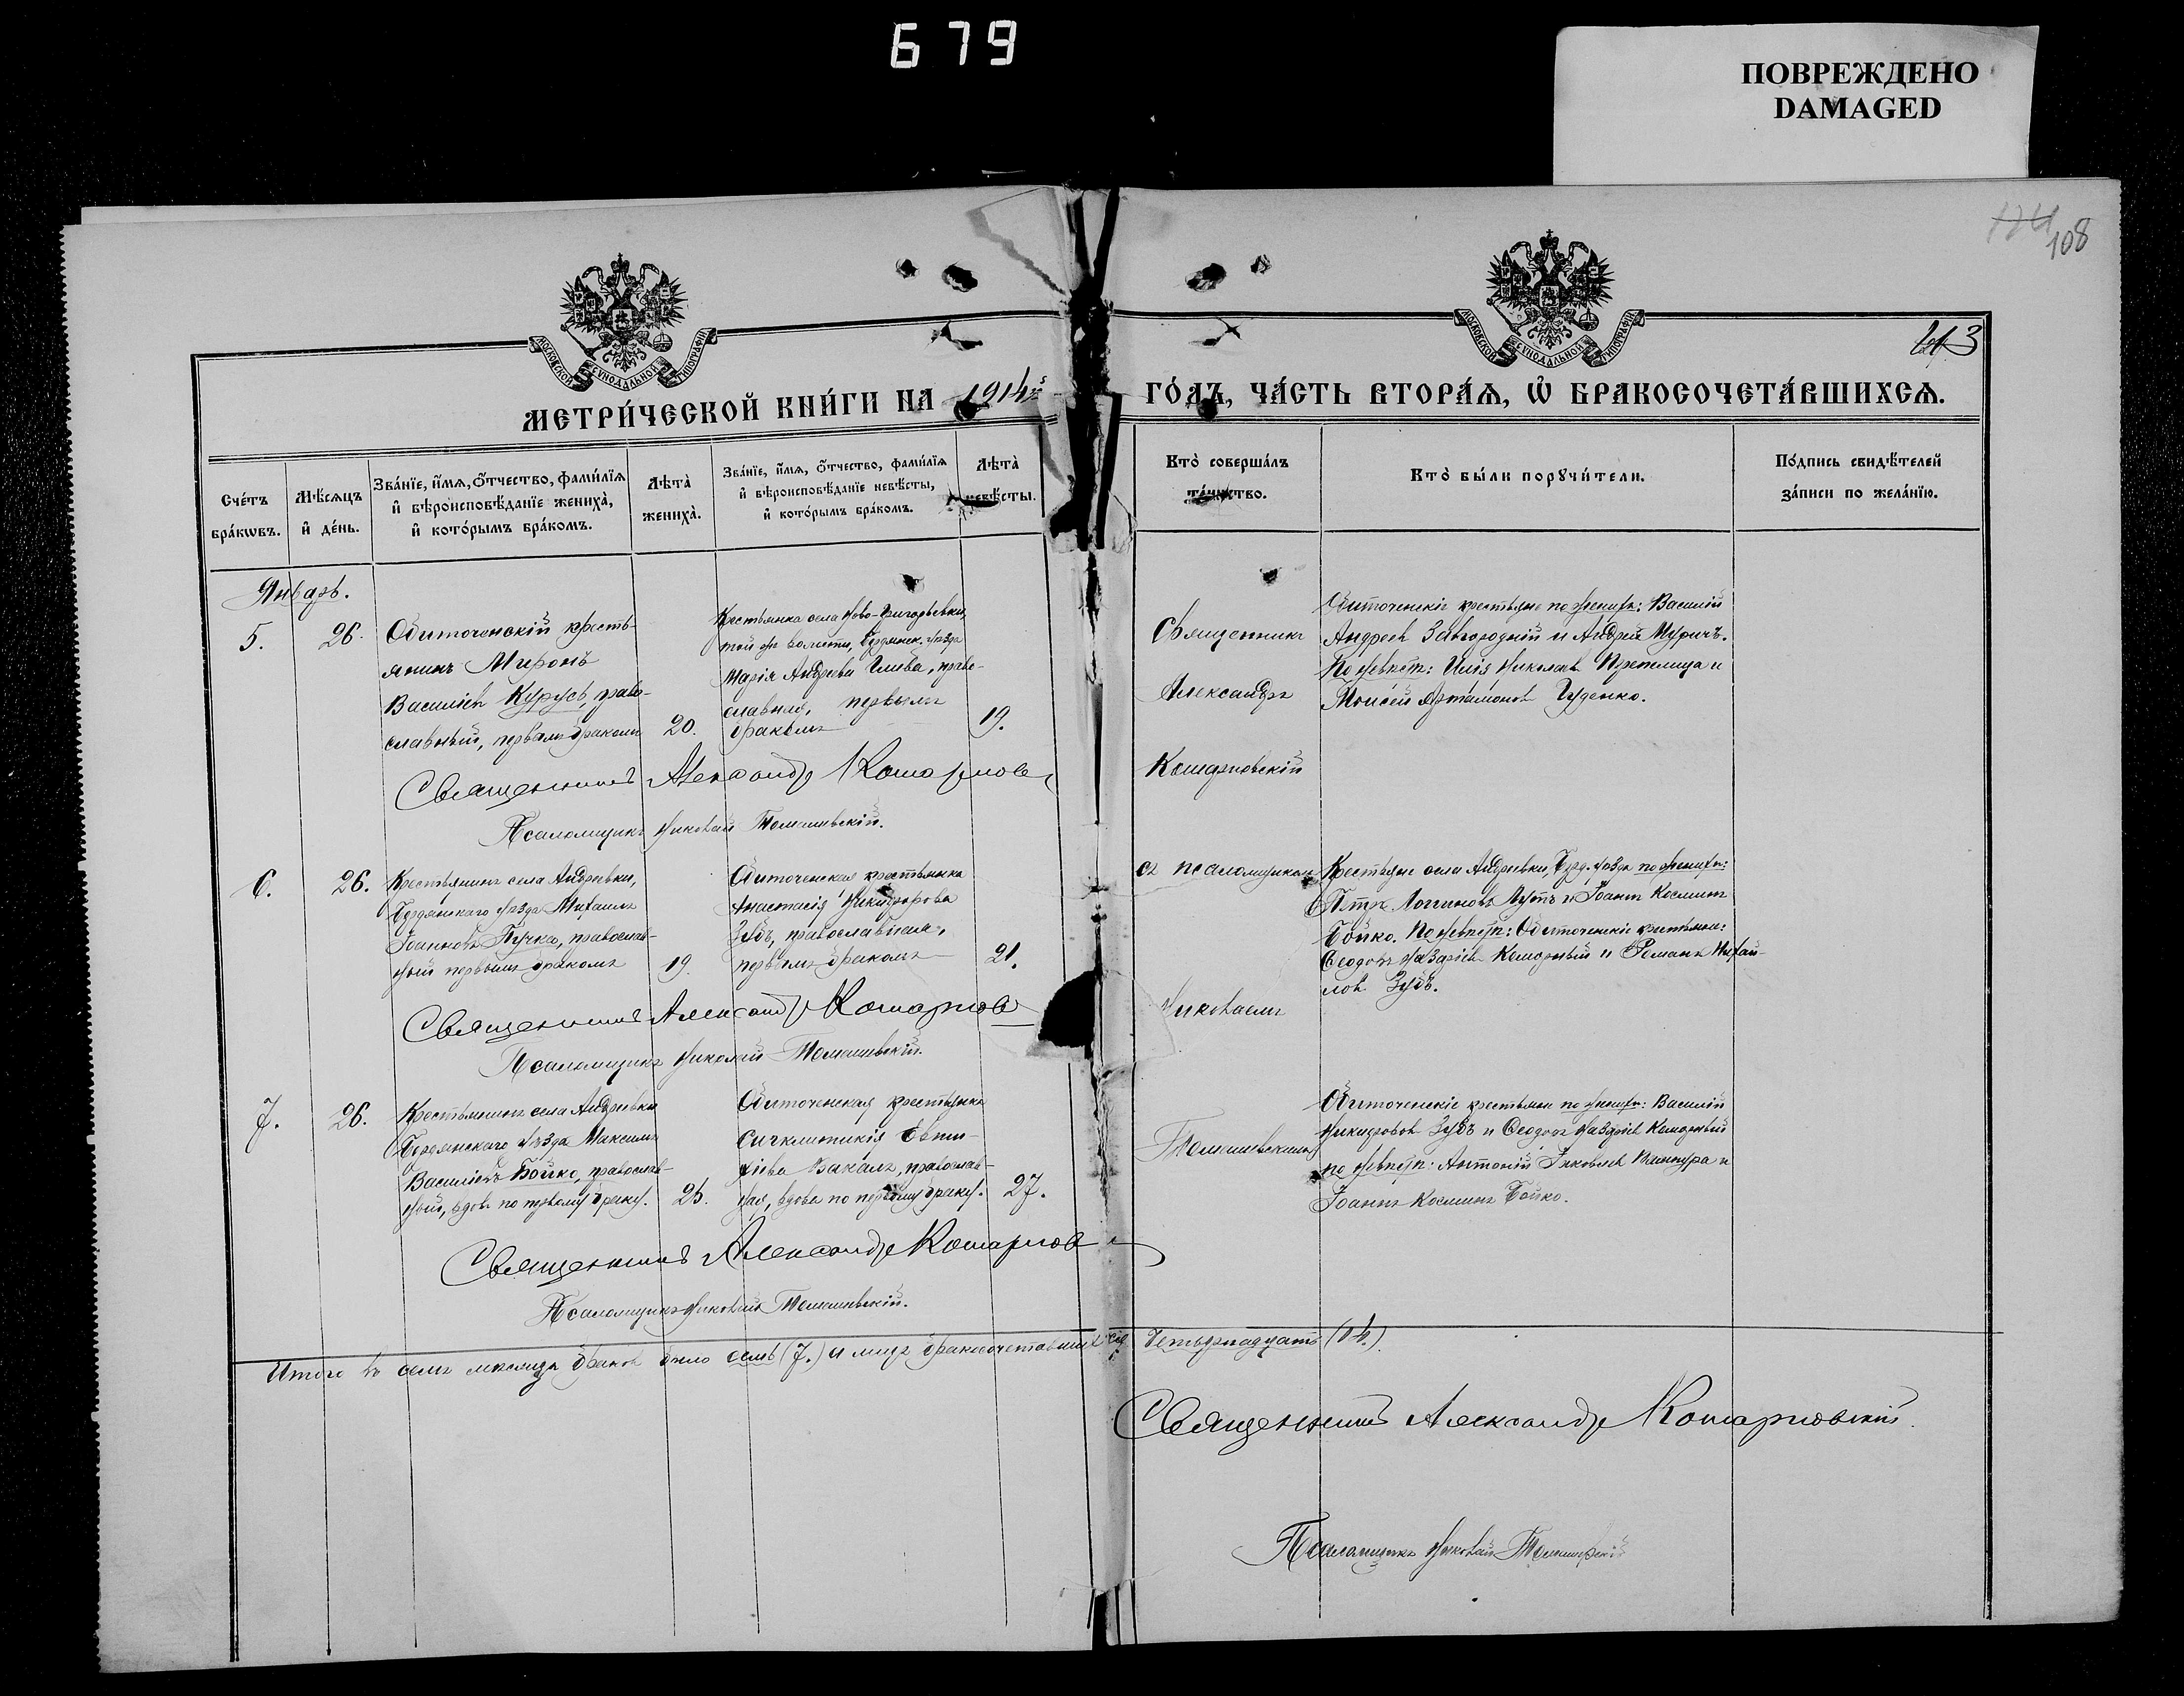 679
ПОВРЕЖДЕНО
DAMAGED
108
МОСКОВСКОЙ СѴНОДАЛЬНОЙ ТИПОГРАФІИ
МОСКОВСКОЙ СѴНОДАЛЬНОЙ ТИПОГРАФІИ
МЕТРИ́ЧЕСКОЙ КНИ́ГИ НА 1914й ГО́ДЪ, ЧА́СТЬ ВТОРА́Ѧ, Ѡ҆ БРАКОСОЧЕТА́ВШИХСѦ.
Сче́тъ
бра́кѡвъ.
Мѣ́сѧцъ
и҆ де́нь.
Зва́нїе, и҆́мѧ, ѻ҆́тчество, фами́лїѧ
и҆ вѣроисповѣ́данїе жениха̀,
и҆ кото́рымъ бра́комъ.
Лѣта̀
жениха̀.
Зва́нїе, и҆́мѧ, ѻ҆́тчество, фами́лїѧ
и҆ вѣроисповѣ́данїе невѣ́сты,
и҆ кото́рымъ бра́комъ.
Лѣта̀
невѣ́сты.
Кто̀ соверша́лъ
та́инство.
Кто̀ бы́ли порꙋчи́тели.
По́дпись свидѣ́телей
за́писи по жела́нїю.
Январь.
5.
26.
Обиточенскій кресть-
янинъ Миронъ
Василіевъ Курусь, право-
славный, первымъ бракомъ
20.
Крестьянка села Ново-Григорьевки,
той же волости, Бердянск. уѣзда
Марія Андреева, право-
славная, первымъ
бракомъ
19.
Священникъ
Александръ
Кошарновскій
Обиточенскіе крестьяне по женихѣ: Василій
Андреевъ Завгородній и Андрей
По невѣстѣ: Илія Николаевъ и
Моисей Артамоновъ Гуденко.
Священникъ Александръ Кошарнов
Псаломщикъ Николай Томашевскій.
6.
26.
Крестьянинъ села Андреевки,
Бердянскаго уѣзда Михаилъ
Іоанновъ Пучко, православ-
ный первымъ бракомъ
19.
Обиточенская крестьянка
Анастасія Никифорова
Зубъ, православная,
первымъ бракомъ
21.
съ псаломщикомъ
Николаемъ
Крестьяне села Андреевки, Берд. уѣзда по женихѣ:
Петръ Логгиновъ и Іоаннъ Косминъ
Бойко. По невѣстѣ: Обиточенскіе крестьяне:
Ѳеодоръ Назаріевъ Коморный и Романъ Михай-
ловъ Зубъ.
Священникъ Александръ Кошарнов
Псаломщикъ Николай Томашевскій.
7.
26.
Крестьянинъ села Андреевки
Бердянскаго уѣзда Максимъ
Василіевъ Бойко, православ-
ный, вдовъ по первому браку.
25.
Обиточенская крестьянка
Сигклитикія Евти-
хіева Вакалъ, православ-
ная, вдова по первому браку.
27.
Томашевскимъ
Обиточенскіе крестьяне по женихѣ: Василій
Никифоровъ Зубъ и Ѳеодоръ Назаріевъ Коморный
по невѣстѣ: Антоній Яковлевъ и
Іоаннъ Косминъ Бойко.
Священникъ Александръ Кошарнов
Псаломщикъ Николай Томашевскій.
Итого въ семъ мѣсяцѣ браковъ было семь (7.) а лицъ бракосочетавшихся четырнадцать (14.).
Священникъ Александръ Кошарновскій.
Псаломщикъ Николай Томашевскій